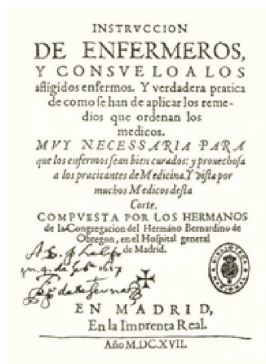 INSTRVCCION
DE ENFERMEROS,
Y CONSVELO A LOS
afligidos enfermos. Y verdadera pratica
de como se han de aplicar los reme-
dios que ordenan los
medicos.
MVY NECESSARIA PARA
que los enfermos sean bien curados: y prouechosa
a los praticantes de Medicina. Y vista por
muchos Medicos desta
Corte.
COMPVESTA POR LOS HERMANOS
de la Congregacion del Hermano Bernardino de
Obregon, en el Hospital general
de Madrid.
EN MADRID,
En la Imprenta Real.
Año M.DC.XVII.